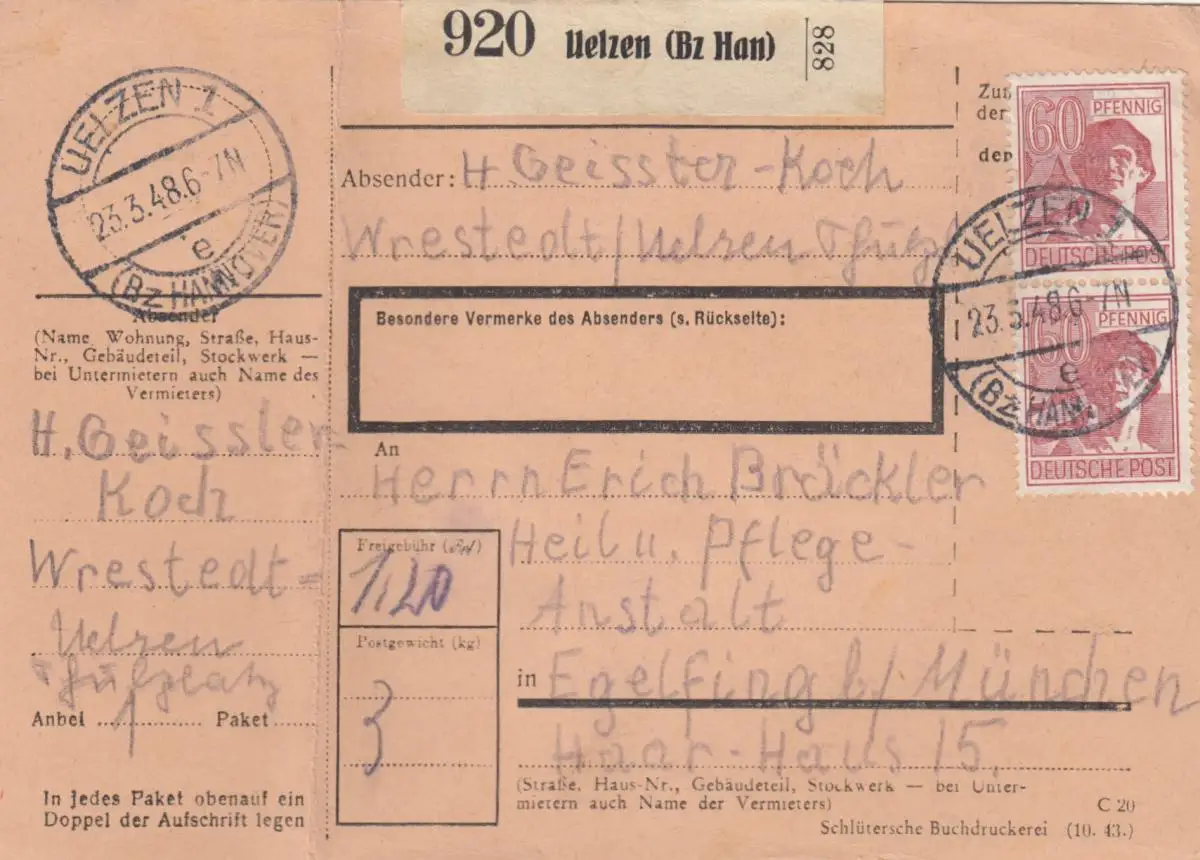 920 Uelzen (Bz Han) 828
UELZEN 1
23.3.48.6-7N
e
(Bz HANNOVER)
Absender
(Name, Wohnung, Straße, Haus-
Nr., Gebäudeteil, Stockwerk —
bei Untermietern auch Name des
Vermieters)
H. Geissler-
Koch
Wrestedt=
Uelzen
Anbei 1 Paket
In jedes Paket obenauf ein
Doppel der Aufschrift legen
Absender: H. Geisster-Koch
Wrestedt/Uelzen
Besondere Vermerke des Absenders (s. Rückseite):
An
Herrn Erich Bräckler
Heil u. Pflege-
Anstalt
in Egelfing b/München
Haar-Haus 15.
(Straße, Haus-Nr., Gebäudeteil, Stockwerk — bei Unter-
mietern auch Name der Vermieters)
Freigebühr (RM)
1,20
Postgewicht (kg)
3
C 20
Schlütersche Buchdruckerei (10. 43.)
der
den
60 PFENNIG
DEUTSCHE POST
UELZEN 1
23.3.48.6-7N
e
60 PFENNIG
DEUTSCHE POST